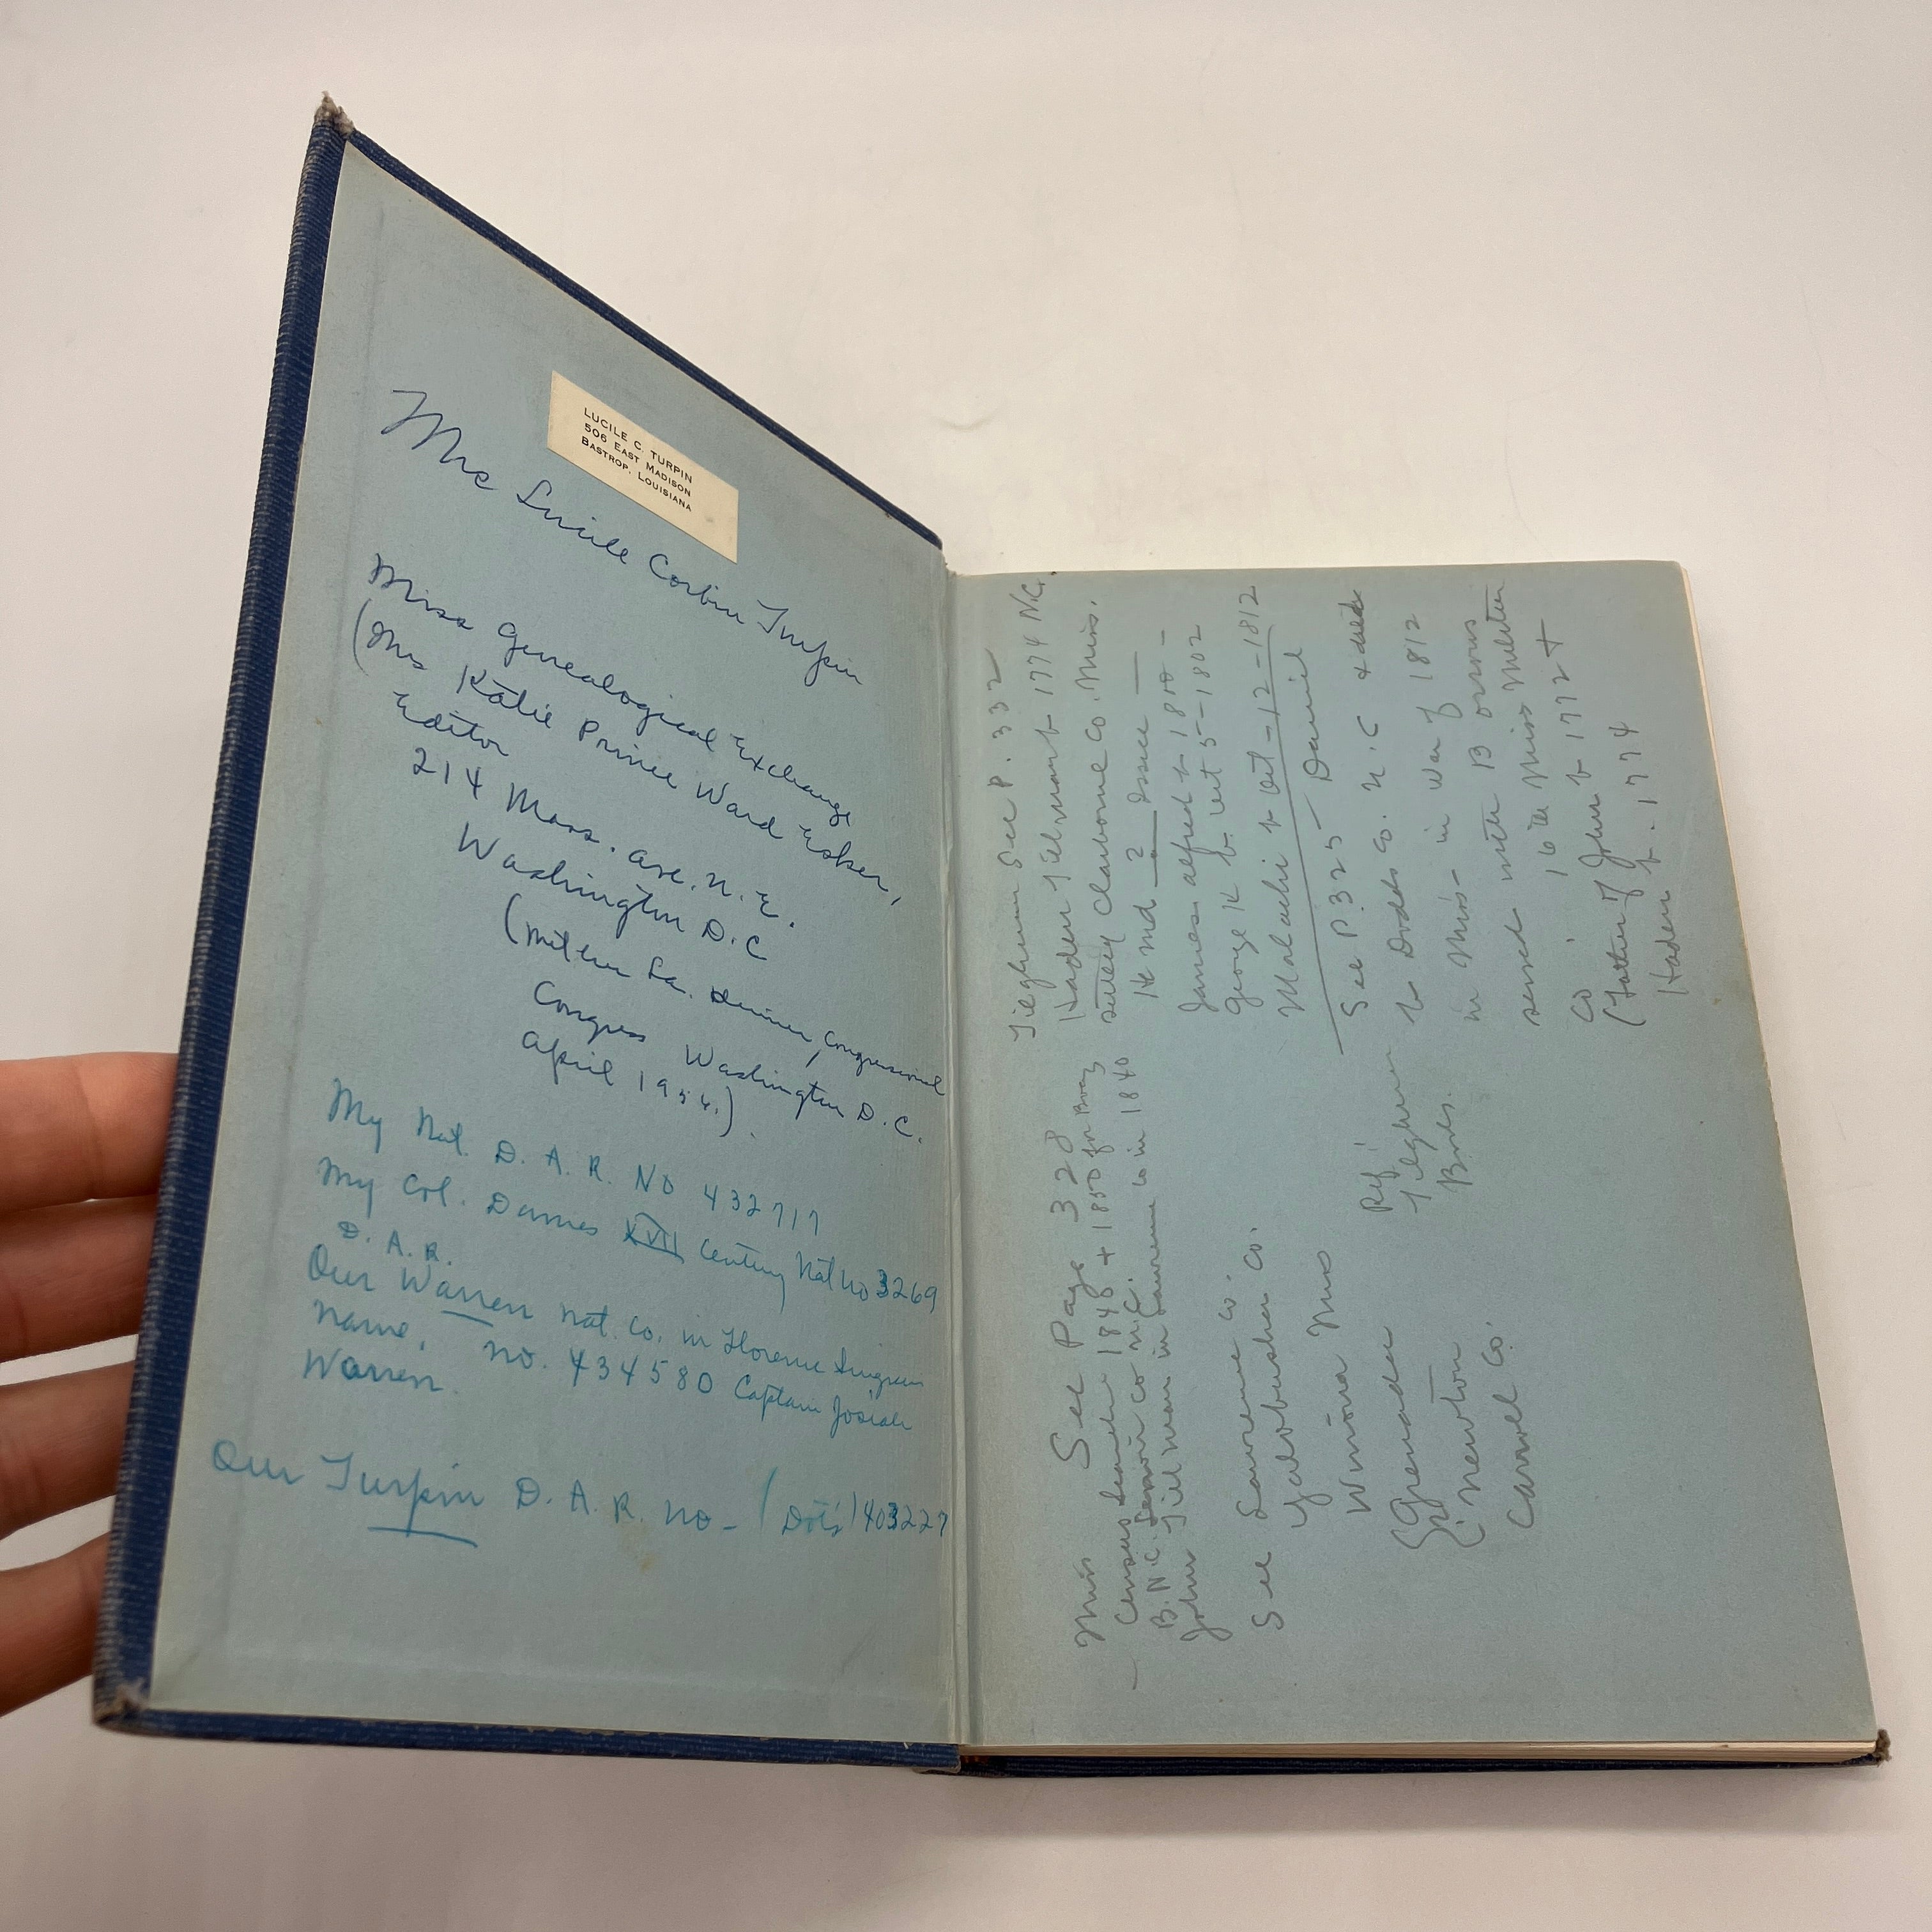 LUCILE C. TURPIN
506 EAST MADISON
BASTROP, LOUISIANA
Mrs Lucile Corbin Turpin
Miss Genealogical Exchange
(Mrs Katie Prince Ward Esker,
Editor
214 Mass. Ave. N. E.
Washington D.C
Congressional
Congress Washington D.C.
April 1954.)
My Nat. D. A. R. No 432717
My Col. Dames XVII Century Nat No 3269
D. A. R.
Our Warren Nat. Co. in Florence Ingram
Name. No. 434580 Captain Josiah
Warren.
Our Turpin D. A. R. No - (Dot's) 403227
Tilghman See P. 332
Haden Tillman b 1774 N.C.
Claiborne Co. Miss.
He md 2 Issue —
James Alfred b 1800 -
George K b. Oct 5 - 1802
Malachi b Oct - 12 - 1812
See P. 325 Daniel
b Dodds Co. N.C & died
in Miss - in War of 1812
served with B
Co ' 16 b 1772 +
(Father of John b
Haden b. 1774
Miss See Page 328
- Census 1845 + 1850 for
B. N.C. Co N.C.
John Tillman in Lawrence Co in 1840
See Lawrence Co.
Yalobusha Co.
Winona Miss
(Grenada
(Newton
Carrol Co.
Ref'
Tilghman
Bords.